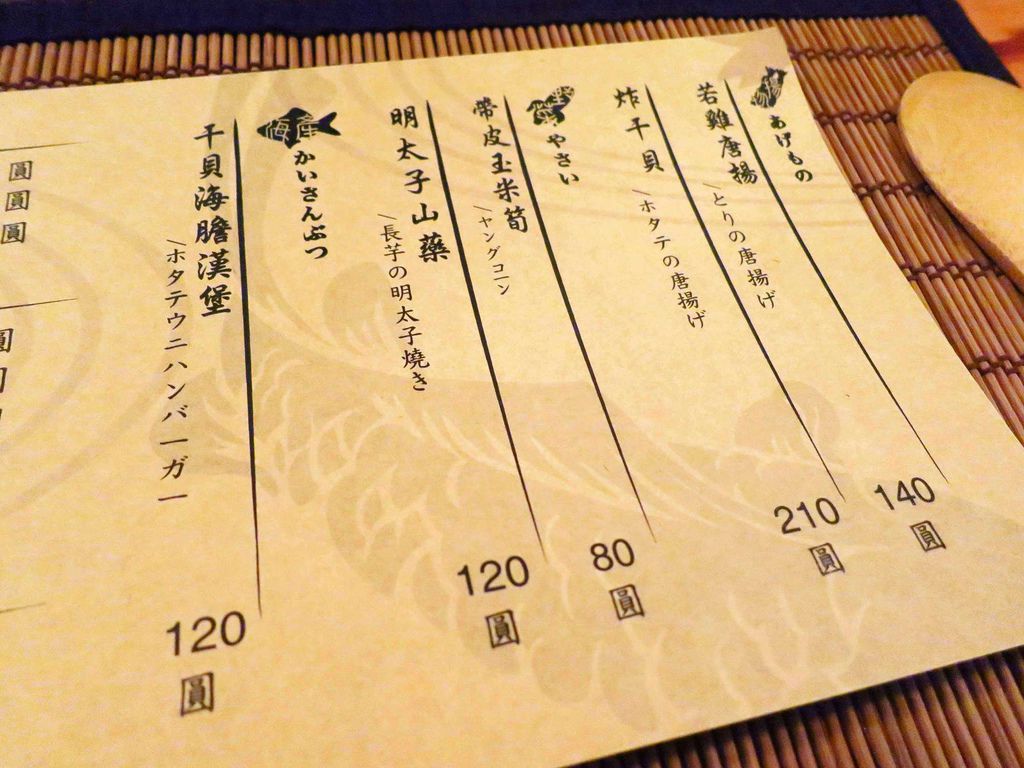 揚物 あげもの
若雞唐揚
\とりの唐揚げ
140
圓
炸干貝
\ホタテの唐揚げ
210
圓
野菜 やさい
帶皮玉米筍
\ヤングコーン
80
圓
明太子山藥
\長芋の明太子燒き
120
圓
海產 かいさんぶつ
干貝海膽漢堡
\ホタテウニハンバーガー
120
圓
圓
圓
圓
圓